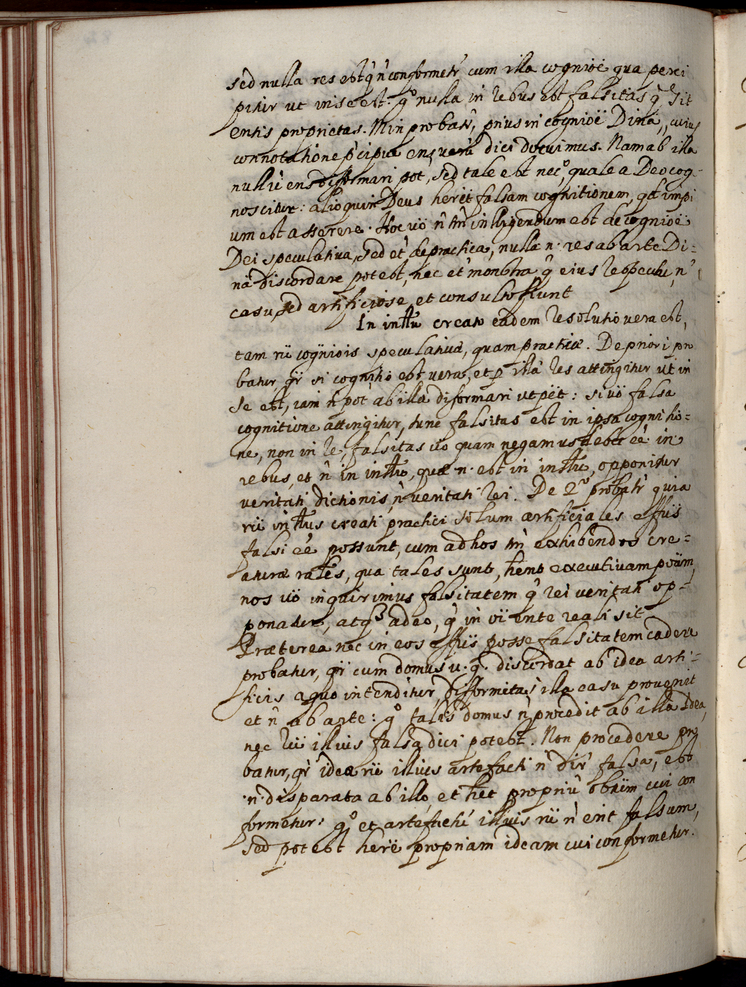 sed nulla res est q̃ ñ conformetr̃ cum illa cognioẽ qua perci
pitur ut in se est: gº nulla in rebus est falsitas q̃ sit
entis proprietas. Min probatr̃, prius in cognioẽ Dina, cuius
connotatione p̃cipua ens veru dici docuimus. Nam ab illa
nullũ ens difformari pot, sed tale est necº quale a Deo cog-
noscitur: alioquin Deus heret falsam cognitionem, qd impi
um est asserere. Hoc vº ñ tm̃ intelligendum est de cognioẽ
Dei speculativa, sed et de practica, nulla n. res ab arte Di-
na discordare potest, nec et monstra, q̃ eius respectu, ñ
casu, sed artificiose, et consulto fiunt
In intũ creato eadem resolutio vera est,
tam rũ cogniois speculativa, quam practicæ. De priori pro
batur, qr̃ si cognitio est vera, et p illa res attingitur ut in
se est, iam ñ pot ab illa difformari ut pẽt: si vº falsa
cognitione attingitur, tunc falsitas est in ipsa cognitio-
ne, non in re, falsitas vº quam negamus debet eẽ in
rebus, et ñ in intũ, quæ n. est in intũ, opponitur
veritati dictionis, ñ veritati rei. De 2º probatr̃ quia
rũ intũs creati practici solum artificiales effũs
falsi eẽ possunt, cum ad hos tm̃ exhibendos cre-
aturæ rales, qua tales sunt, hent executivam potm̃,
nos vº inquirimus falsitatem q̃ rei veritati op-
ponatur, atq3 adeo, q̃ in oĩ ente reali sit
Præterea nec in eos effũs posse falsitatem cadere
probatur, qr̃ cum domus u. g. discordat ab idea arti-
ficis a quo intenditur, difformitas illa casu provenit
et ñ ab arte: gº talis domus ñ procedit ab illa idea,
nec rũ illius falsa dici potest. Non procedere pro
batur, qr̃ ideæ rũ illius artefacti ñ dir̃ falsa, est
n. disparata ab illo, et het propriũ obtm̃ cui con
formetur: gº et artefactũ illius rũ ñ erit falsum,
sed potest here propriam ideam cui conformetur.